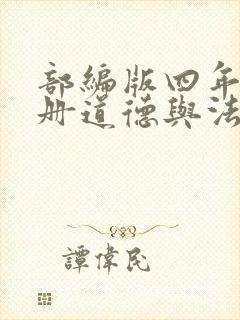 部编版四年
册道德與法
譚偉民